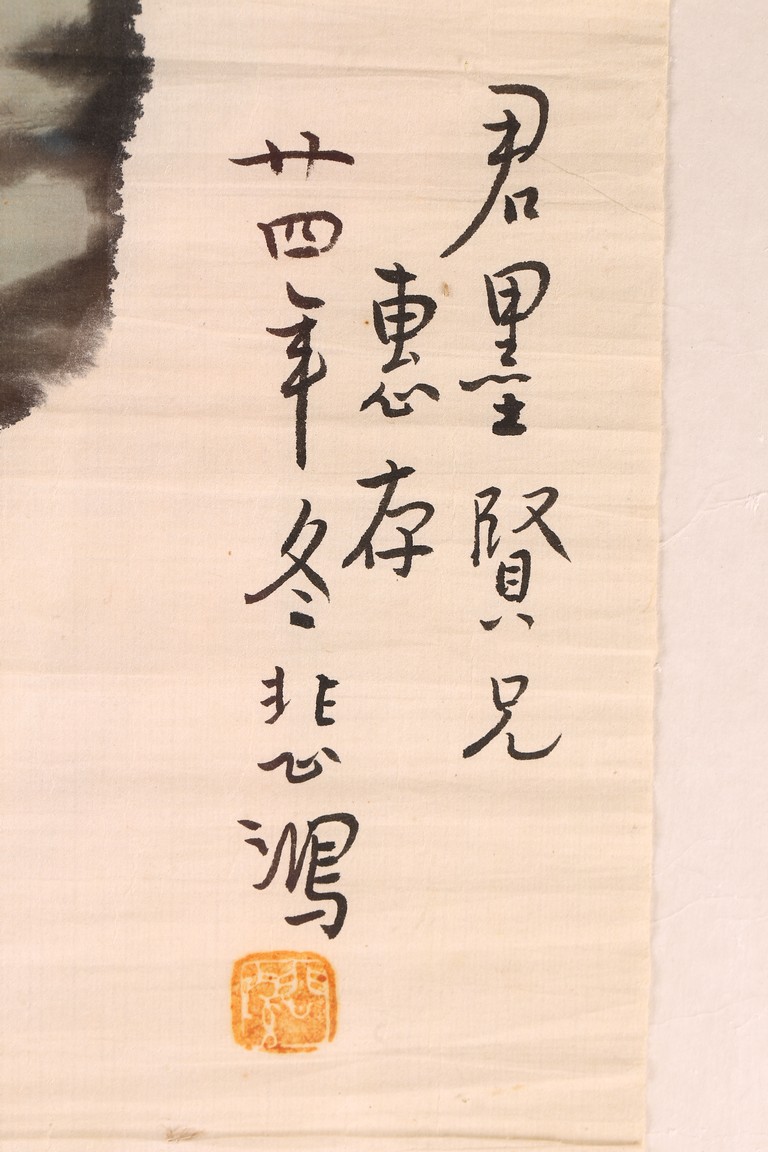 君墨賢兄
惠存
廿四年冬悲鴻